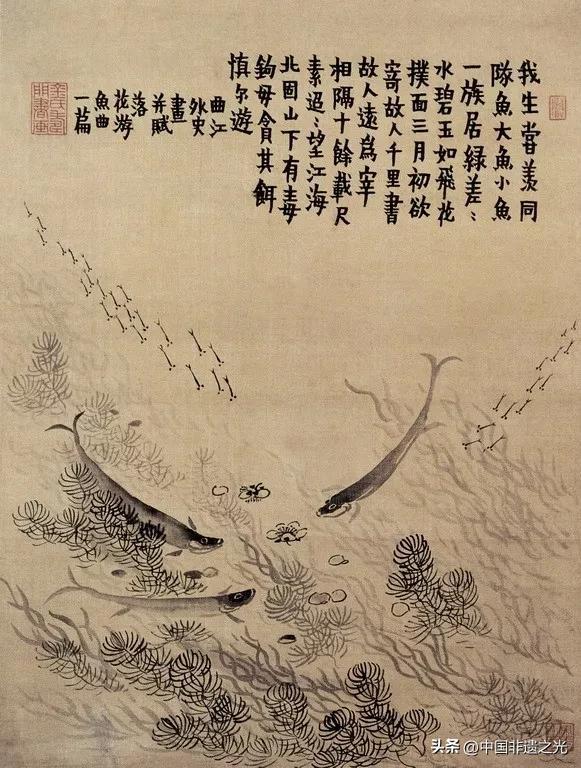 我生嘗羡同
隊魚大魚小魚
一族居綠差〻
水碧玉如飛花
撲面三月初欲
寄故人千里書
故人遠爲宰
相隔十餘載尺
素迢〻望江海
北固山下有毒
鉤毋貪其餌
慎尔遊
曲江
外史
畫
并賦
落
花游
魚曲
一篇
头条 @中国非遗之光